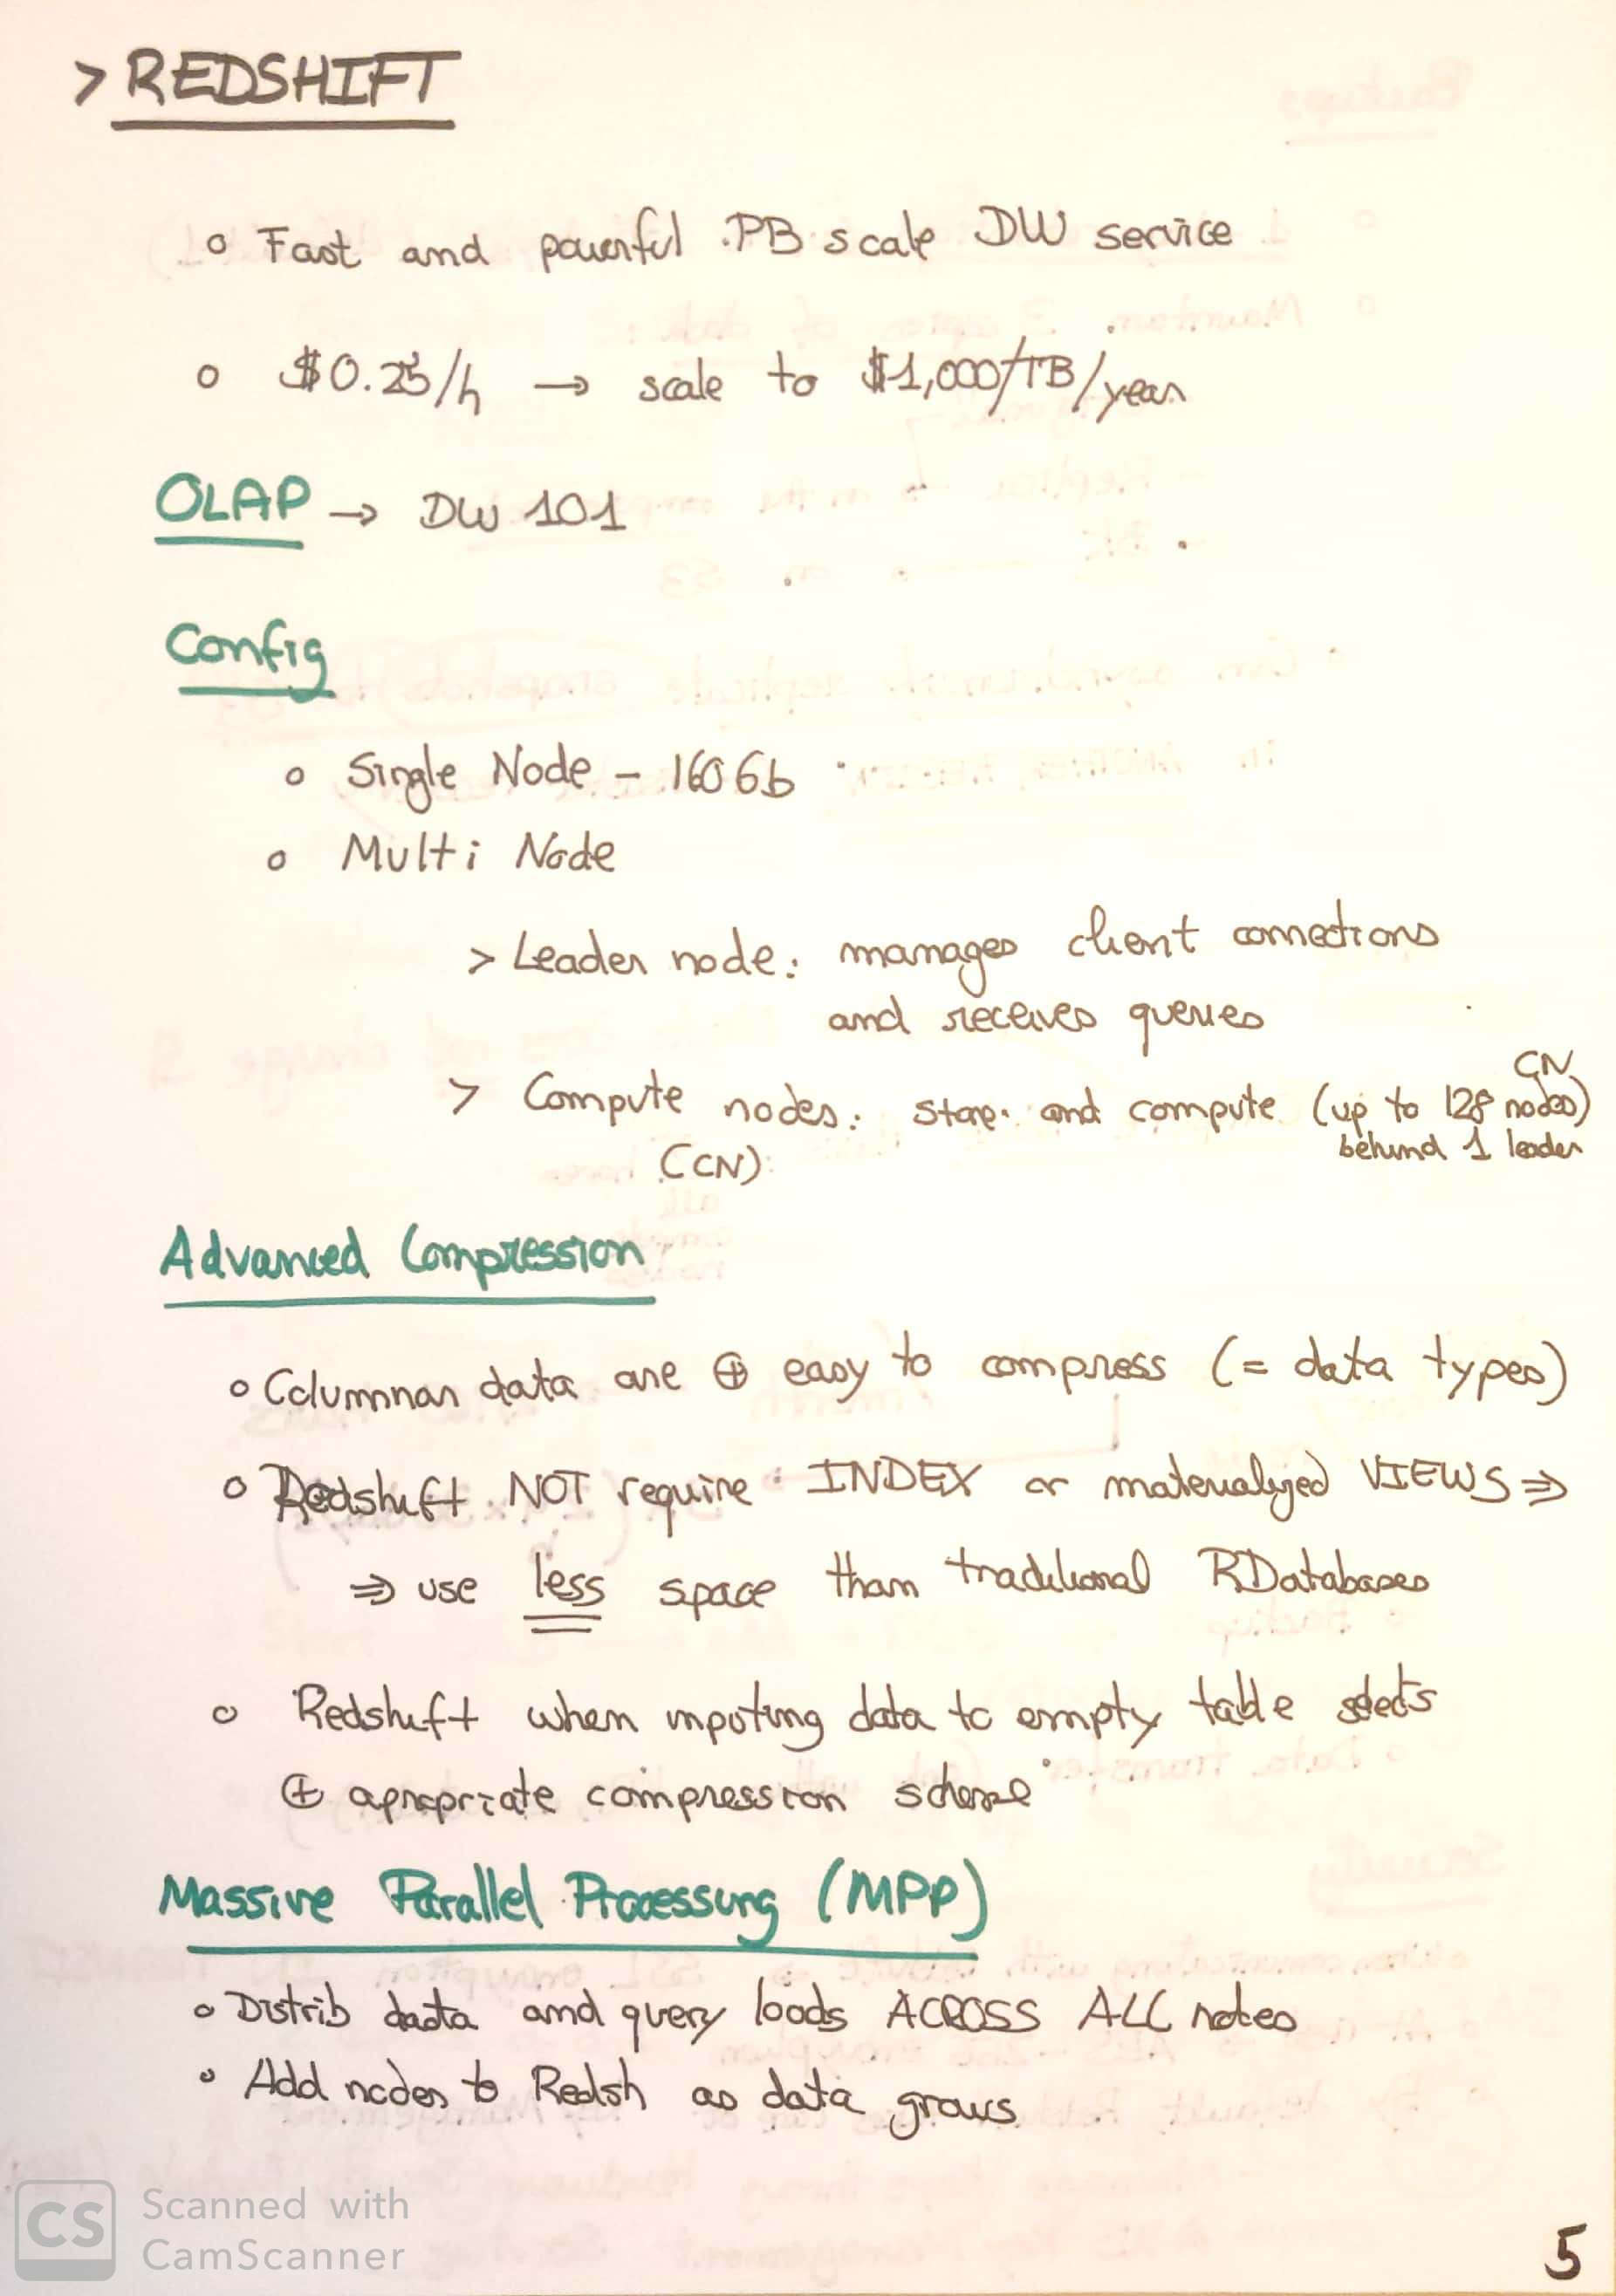 > REDSHIFT
o Fast and powerful PB scale DW service
o $0.25/h → scale to $1,000/TB/year
OLAP → DW 101
Config
o Single Node - 160Gb
o Multi Node
> Leader node: manages client connections
and receives queries
> Compute nodes: store and compute (up to 128 CN nodes)
(CN) behind 1 leader
Advanced Compression
o Columnar data are ⊕ easy to compress (= data types)
o Redshift NOT require INDEX or materialized VIEWS ⇒
⇒ use less space than traditional RDatabases
o Redshift when inputing data to empty table selects
⊕ apropriate compression scheme
Massive Parallel Processing (MPP)
o Distrib data and query loads ACROSS ALL notes
o Add nodes to Redsh as data grows
CS Scanned with
CamScanner
5